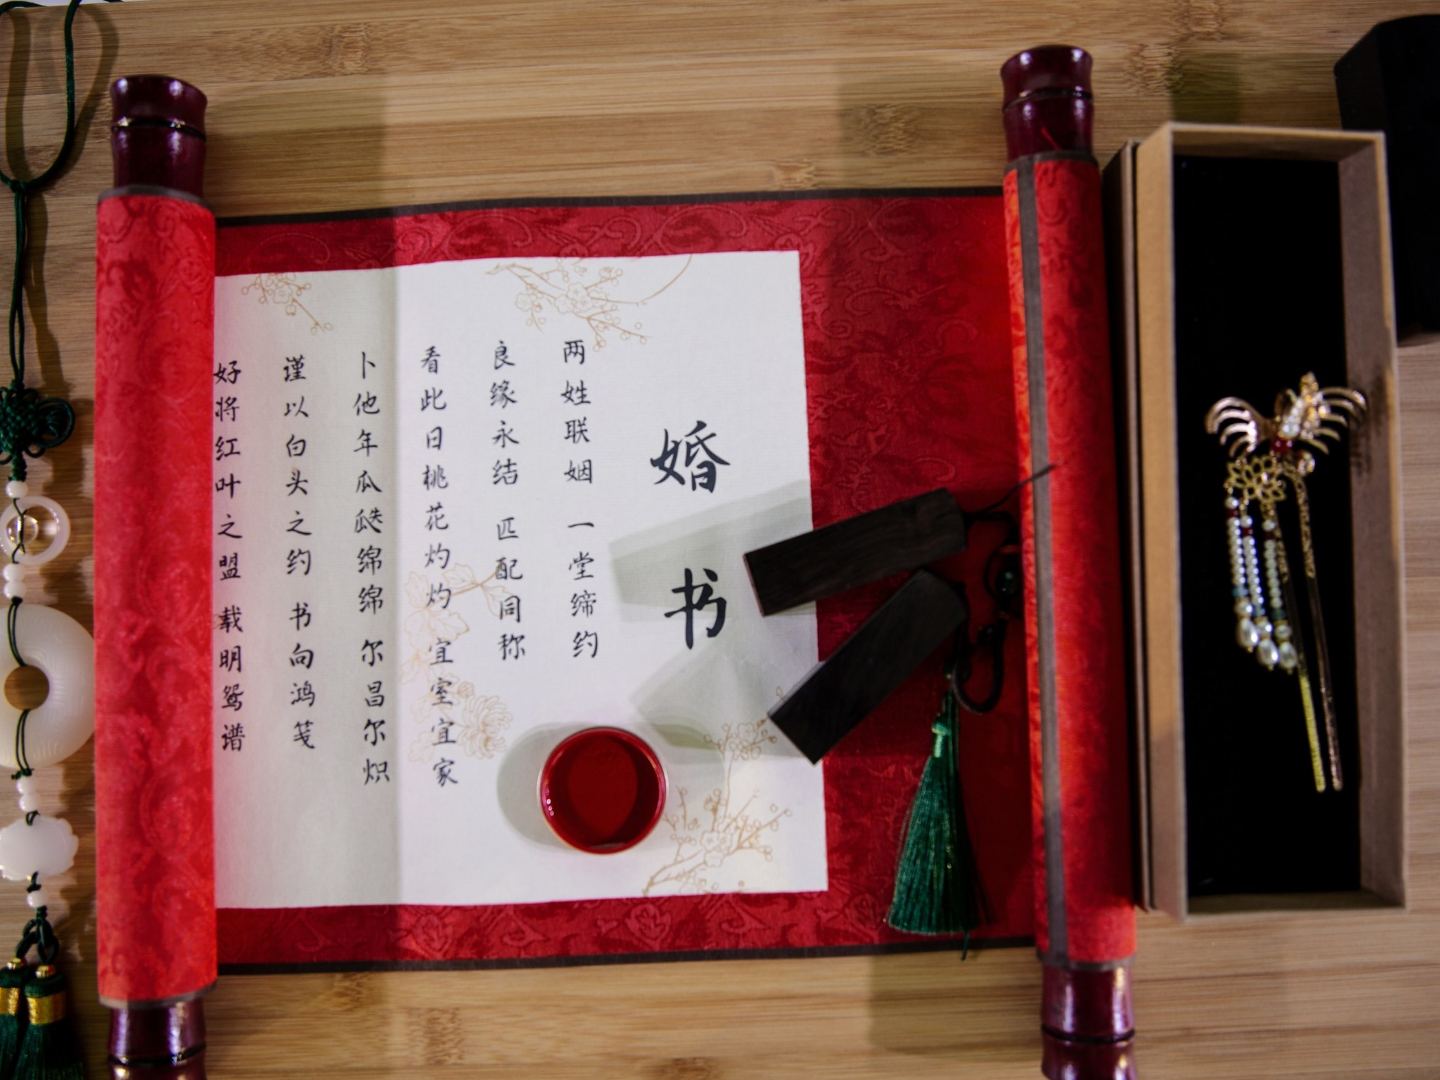 婚书
两姓联姻 一堂缔约
良缘永结 匹配同称
看此日桃花灼灼 宜室宜家
卜他年瓜瓞绵绵 尔昌尔炽
谨以白头之约 书向鸿笺
好将红叶之盟 载明鸳谱